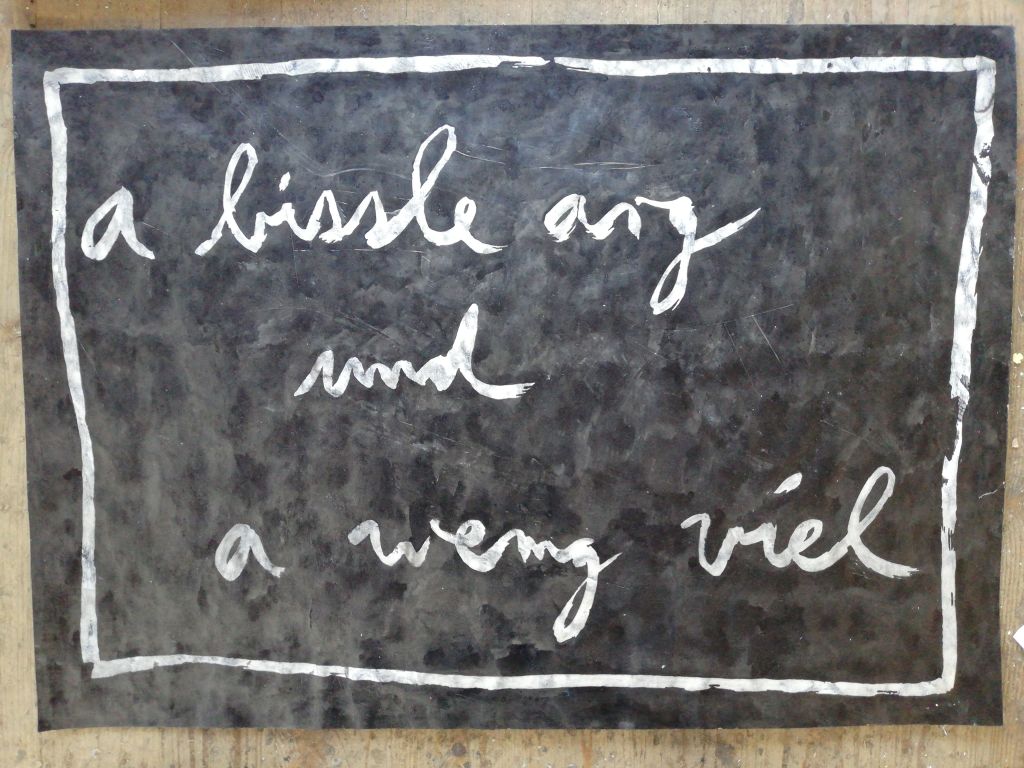 a bissle arg
und
a weng viel